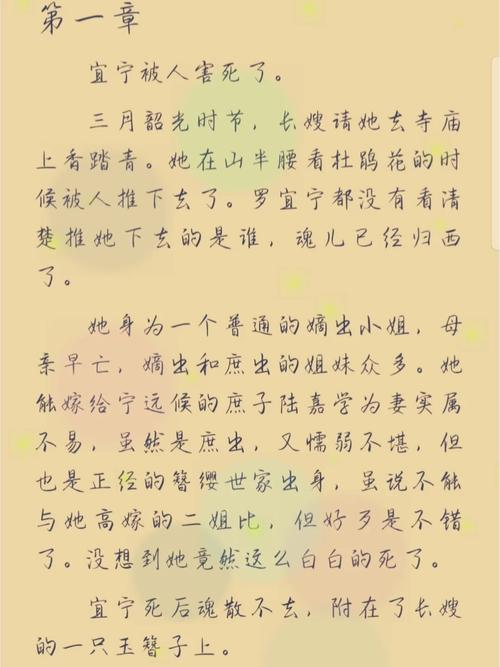 第一章
宜宁被人害死了。
三月韶光时节，长嫂请她去寺庙
上香踏青。她在山半腰看杜鹃花的时
候被人推下去了。罗宜宁都没有看清
楚推她下去的是谁，魂儿已经归西
了。
她身为一个普通的嫡出小姐，母
亲早亡，嫡出和庶出的姐妹众多。她
能嫁给宁远候的庶子陆嘉学为妻实属
不易，虽然是庶出，又懦弱不堪，但
也是正经的簪缨世家出身，虽说不能
与她高嫁的二姐比，但好歹是不错
了。没想到她竟然这么白白的死了。
宜宁死后魂散不去，附在了长嫂
的一只玉簪子上。